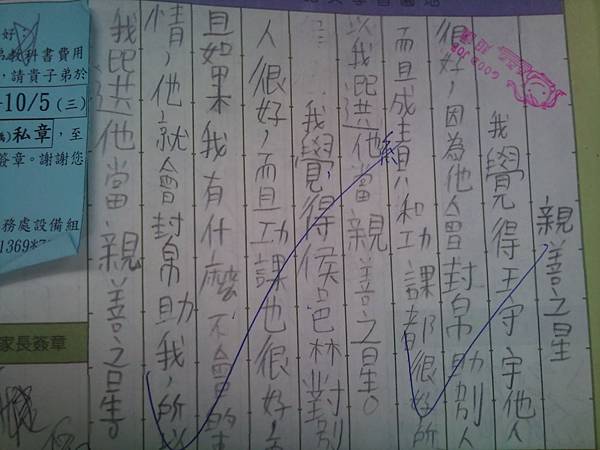 親善之星
我覺得王守宇他人
很好，因為他會幫助別人
而且成績和功課都很好所
以我選他當親善之星。
我覺得侯品林對別
人很好，而且功課也很好，
且如果我有什麼不會的事
情，他就會幫助我，所以
我選他當親善之星。
GOOD JOB
好
弟教科書費用
，請貴子弟於
10/5(三)
私章，至
簽章。謝謝您
務處設備組
1369*7
家長簽章